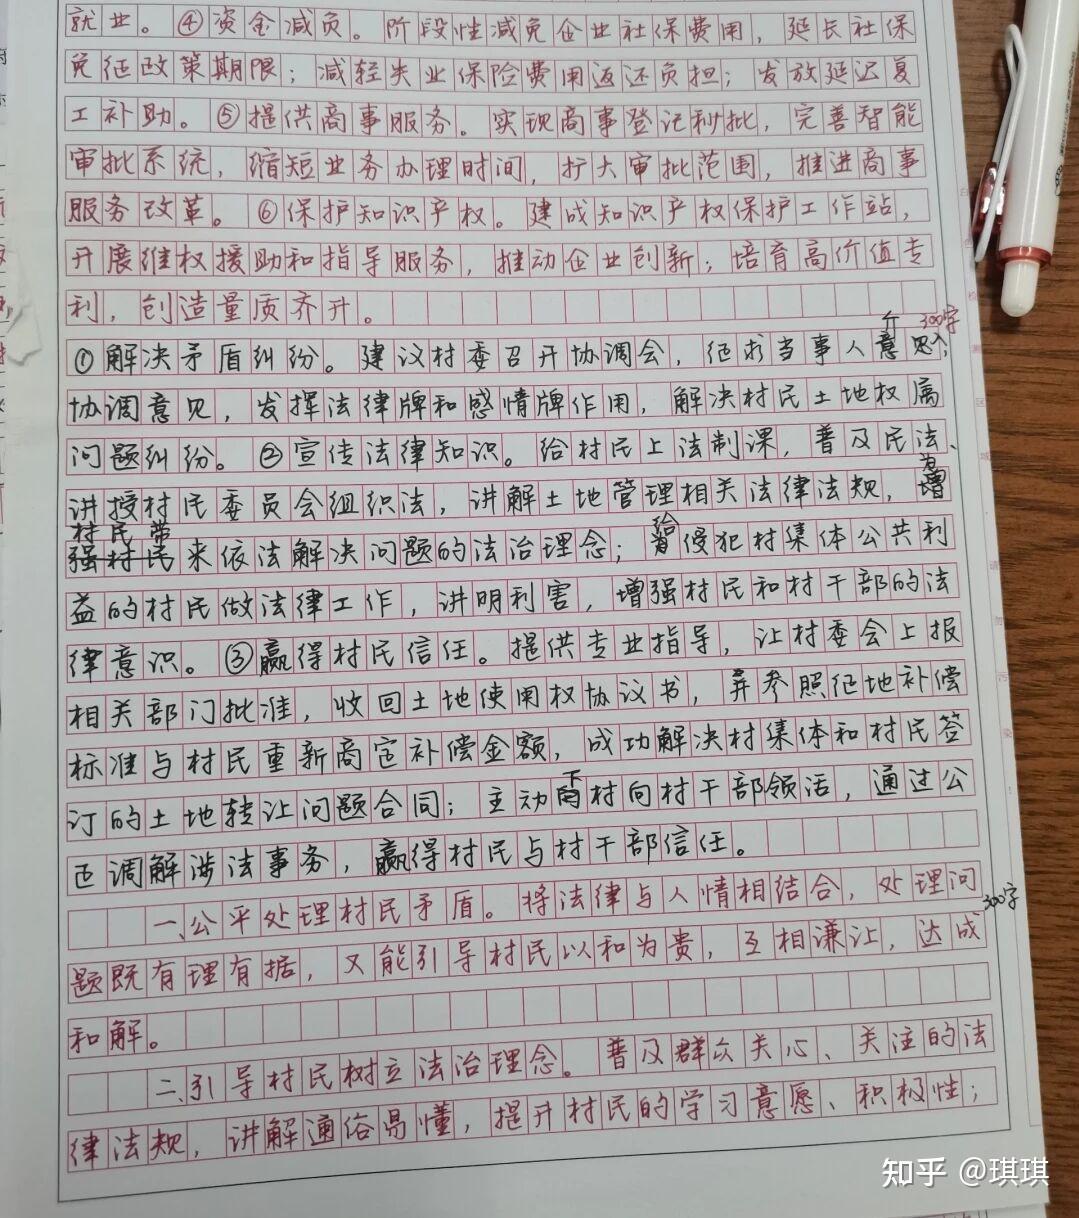 就业。④资金减负。阶段性减免企业社保费用，延长社保
免征政策期限；减轻失业保险费用返还负担；发放延迟复
工补助。⑤提供商事服务。实现商事登记秒批，完善智能
审批系统，缩短业务办理时间，扩大审批范围，推进商事
服务改革。⑥保护知识产权。建成知识产权保护工作站，
开展维权援助和指导服务，推动企业创新；培育高价值专
利，创造量质齐升。
300字
①解决矛盾纠纷。建议村委召开协调会，征求当事人意见，
协调意见，发挥法律牌和感情牌作用，解决村民土地权属
问题纠纷。②宣传法律知识。给村民上法制课，普及民法、
讲授村民委员会组织法，讲解土地管理相关法律法规，为增
村民带
强村民来依法解决问题的法治理念；给侵犯村集体公共利
益的村民做法律工作，讲明利害，增强村民和村干部的法
律意识。③赢得村民信任。提供专业指导，让村委会上报
相关部门批准，收回土地使用权协议书，并参照征地补偿
标准与村民重新商定补偿金额，成功解决村集体和村民签
订的土地转让问题合同；主动下村向村干部领活，通过公
正调解涉法事务，赢得村民与村干部信任。
一、公平处理村民矛盾。将法律与人情相结合，处理问
300字
题既有理有据，又能引导村民以和为贵，互相谦让，达成
和解。
二、引导村民树立法治理念。普及群众关心、关注的法
律法规，讲解通俗易懂，提升村民的学习意愿、积极性；
知乎 @琪琪